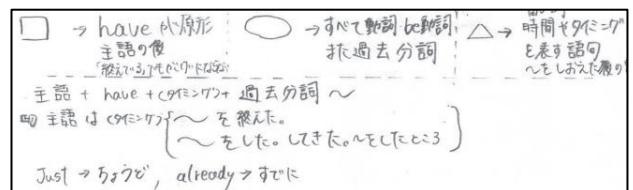 □ → have が原形
主語の後
○ → すべて動詞 be動詞
また過去分詞
△ → 時間やタイミング
を表す語句
〜をしおえた
主語 + have + (タイミング) + 過去分詞 〜
主語は (タイミング) 〜を終えた。
〜をした。してきた。〜をしたところ
Just → ちょうど, already → すでに